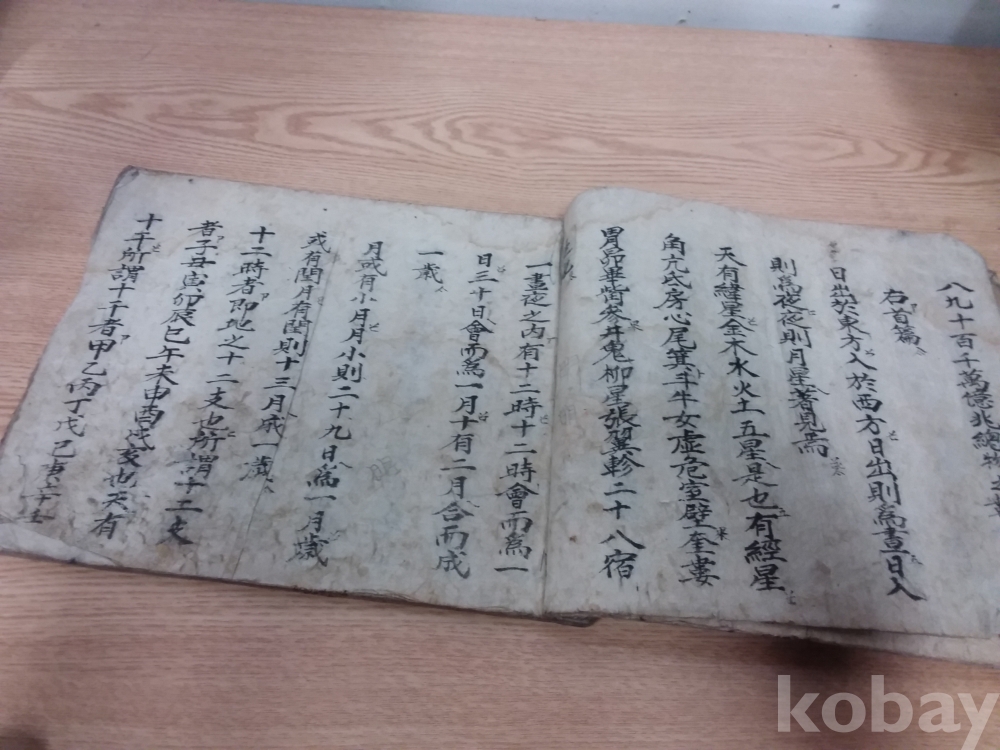 八九十百千萬億兆總物之數
右首篇
日出於東方入於西方日出則爲晝日入
則爲夜夜則月星著見焉
天有緯星金木水火土五星是也有經星
角亢氐房心尾箕斗牛女虛危室壁奎婁
胃昴畢觜參井鬼柳星張翼軫二十八宿
一晝夜之內有十二時十二時會而爲一
日三十日會而爲一月十有二月合而成
一歲
月或有小月月小則二十九日爲一月歲
或有閏月有閏則十三月成一歲
十二時者即地之十二支也所謂十二支
者子丑寅卯辰巳午未申酉戌亥也天有
十干所謂十干者甲乙丙丁戊己庚辛壬
kobay